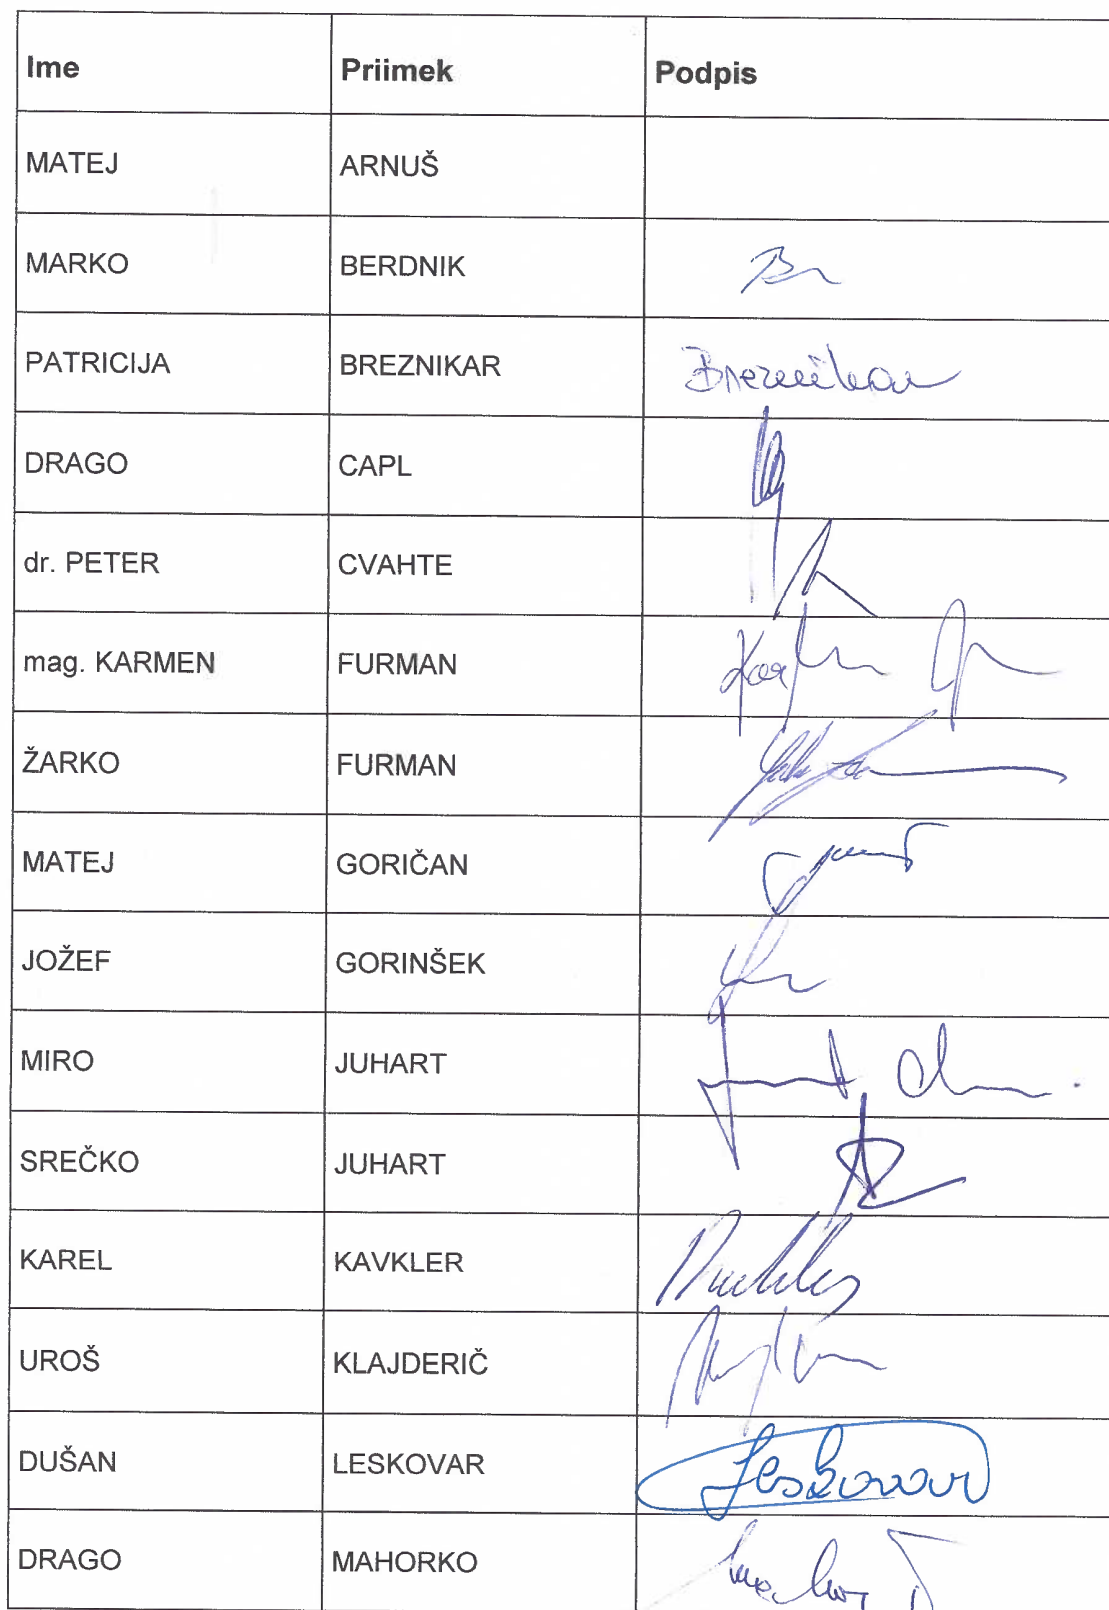 Ime Priimek Podpis
MATEJ ARNUŠ
MARKO BERDNIK
PATRICIJA BREZNIKAR Breznikar
DRAGO CAPL
dr. PETER CVAHTE
mag. KARMEN FURMAN
ŽARKO FURMAN
MATEJ GORIČAN
JOŽEF GORINŠEK
MIRO JUHART
SREČKO JUHART
KAREL KAVKLER
UROŠ KLAJDERIČ
DUŠAN LESKOVAR Leskovar
DRAGO MAHORKO